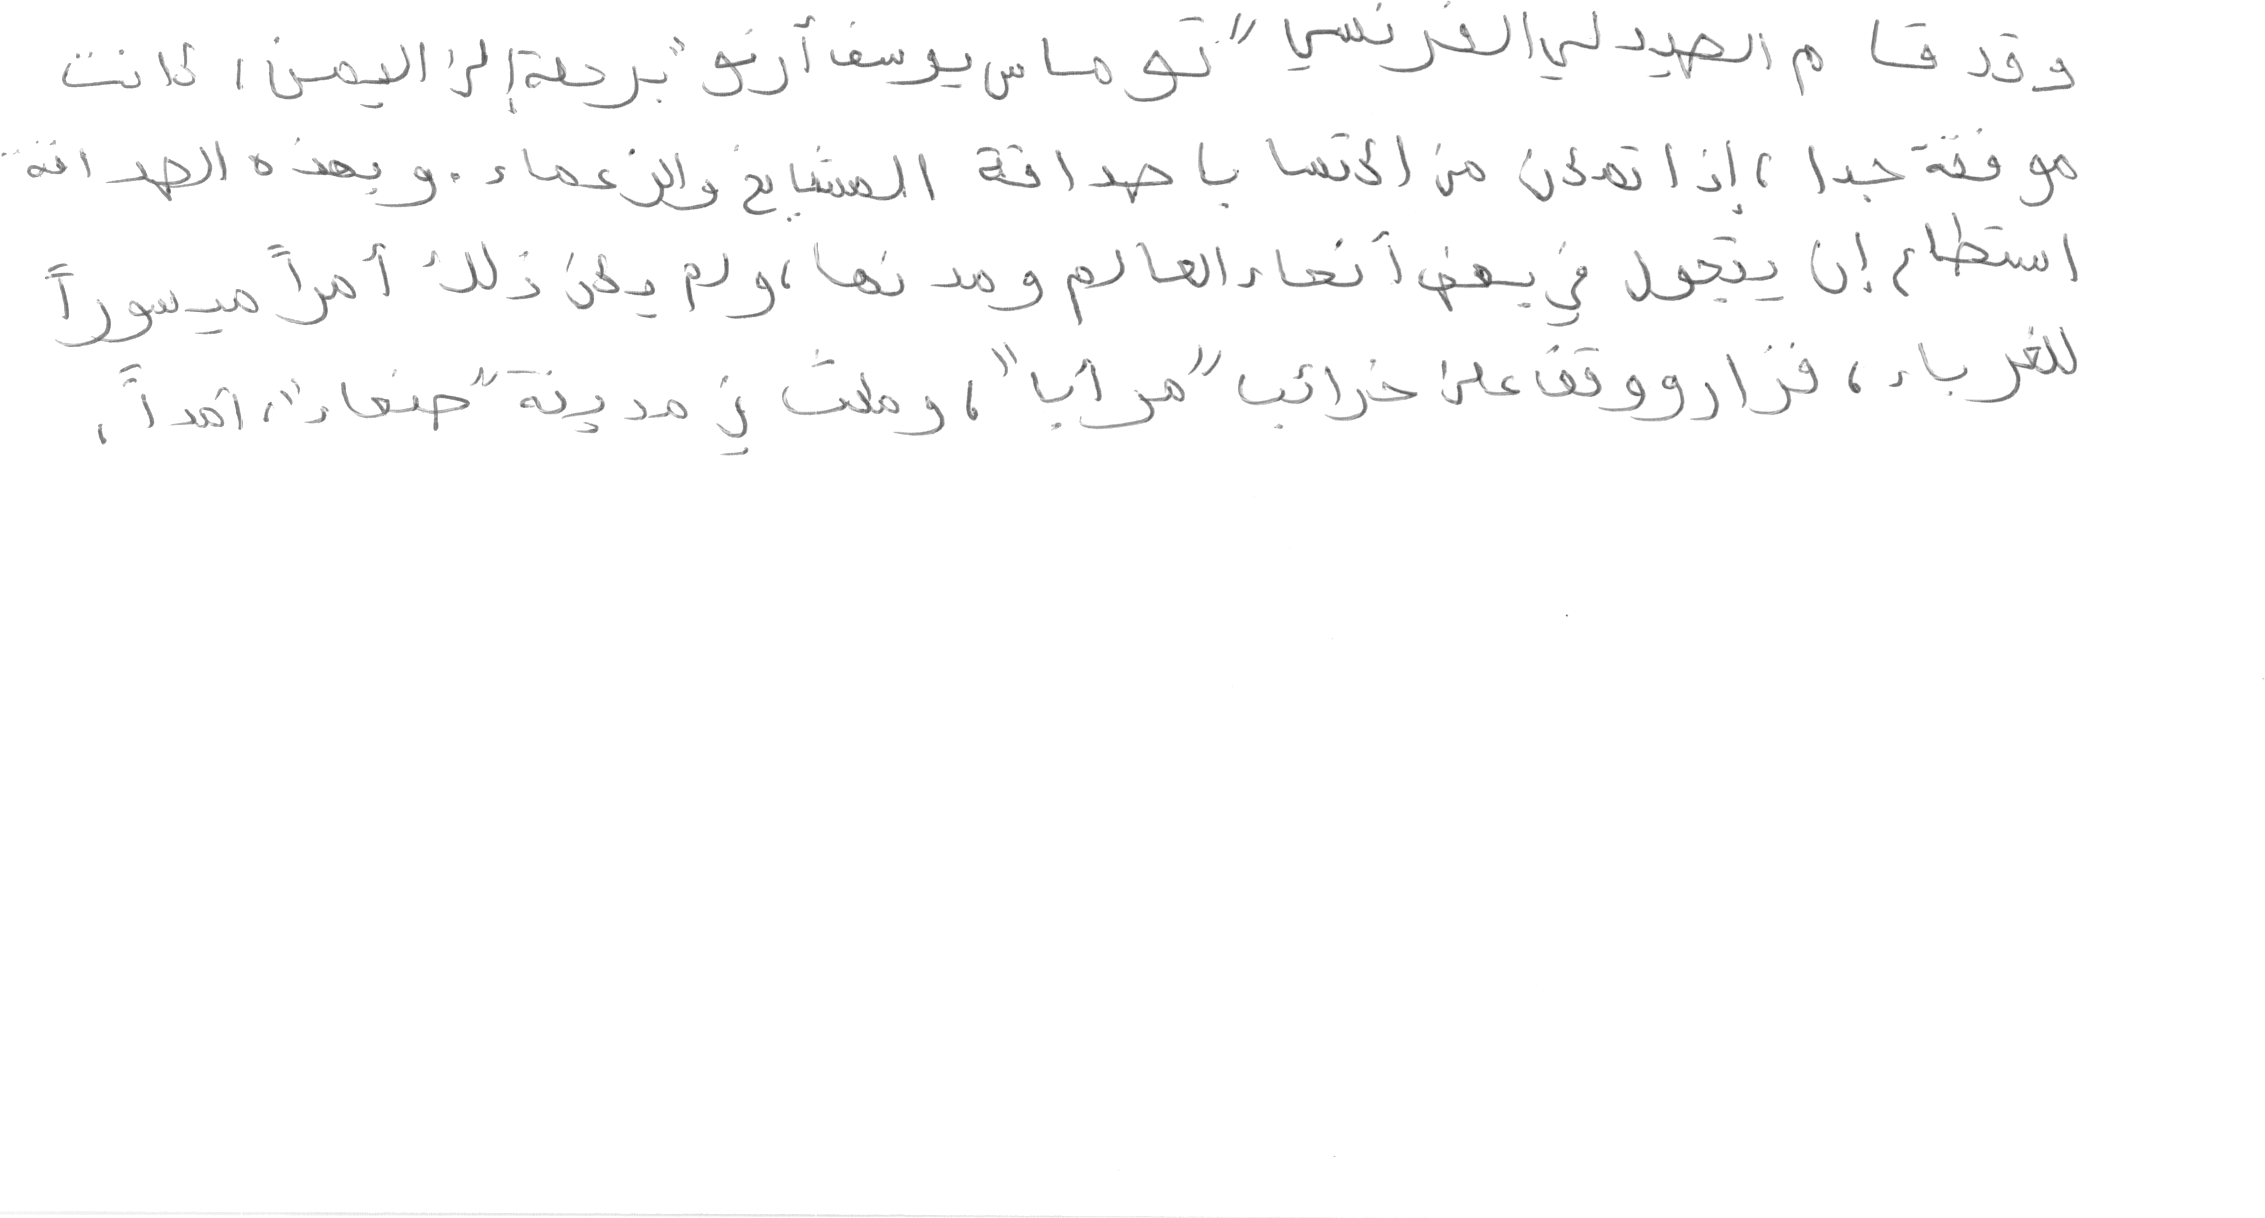 وقد قام الصيدلي الفرنسي "توماس يوسف أرنو" برحلة إلى اليمن، كانت
موفقة جدا، إذا تمكن من اكتساب صداقة المشايخ والزعماء. وبهذه الصداقة
استطاع إن يتجول في بعض أنحاء العالم ومدنها، ولم يكن ذلك أمراً ميسوراً
للغرباء، فزار ووقف على خرائب "مرآبا"، ومكث في مدينة "صنعاء"، أمداً،